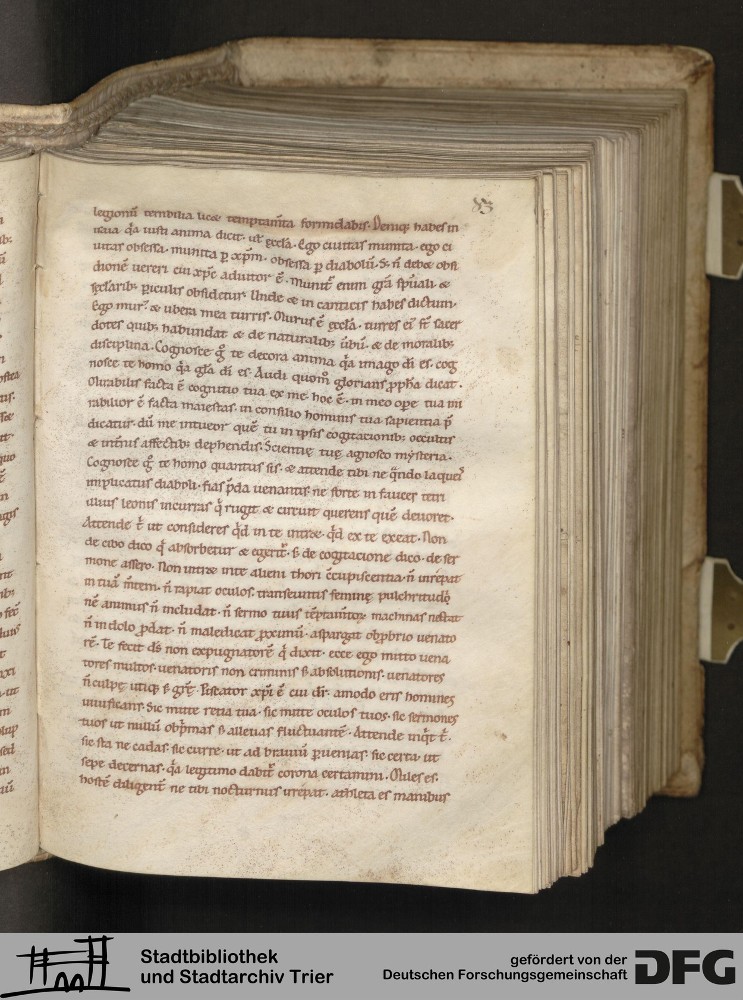 83
legionū terribilia licet temptam̅ta formidabis. Deniq; habes in
isaia q̅a iusti anima dicit. ut̅ eccl̅a. Ego ciuitas munita. ego ci
uitas obsessa. munita p̱ xp̅m. obsessa p̱ diabolū. S; n̅ debet obsi
dionē uereri cui xp̅c adiutor ē. Munit̅ enim gr̅a sp̅uali &
sęclarib; p̱iculis obsidetur. Unde & in canticis habes dictum.
Ego mur᷒ & ubera mea turris. Murus ē eccl̅a. turres ei᷒ st̅ sacer
dotes quib; habundat & de naturalib; u̅bū. & de moralib;
disciplina. Cognosce g̊ te decora anima q̅a imago di̅ es. cog
nosce te homo q̅a gl̅a di̅ es. Audi quom̊ glorians p̱ph̅a dicat.
Mirabilis facta ē cognitio tua ex me. hoc ē. in meo ope̱ tua mi
rabilior ē facta maiestas. in consilio hominis tua sapientia p̅
dicatur. dū me intueor quē tu in ipsis cogitacionib; occultis
& int̅nis affectib; dephendis. Scientię tuę agnosco mysteria.
Cognosce g̊ te homo quantus sis. & attende tibi ne q̅ndo laquei᷒
implicatus diaboli. fias p̅da uenantis. ne forte in fauces tetri
illius leonis incurras q̇ rugit & circuit querens quē deuoret.
Attende t̅ ut consideres q̇d in te intret. q̇d ex te exeat. Non
de cibo dico q̇ absorbetur & egerit̅. s; de cogitacione dico. de ser
mone assero. Non intret inte alieni thori c̅cupiscentia. n̅ inrepat
in tuā m̅tem. n̅ rapiat oculos. transeuntis feminę pulchritudo
nē animus n̅ includat. n̅ sermo tuus te̅ptam̅torū machinas nectat
n̅ in dolo p̱dat. n̅ maledicat p̱ximū. aspargat obp̱brio uenato
rē. Te fecit d̅s non expugnatorē q̇ dixit. ecce ego mitto uena
tores multos. uenatoris non criminis s; absolutionis. uenatores
n̅ culpę utiq; s; gr̅ę. Piscator xp̅i ē cui dr̅. amodo eris homines
uiuificans. Sic mitte retia tua. sic mitte oculos tuos. sic sermones
tuos ut nullū obp̅mas s; alleuas fluctuantē. Attende inq̇t t̅.
sic sta ne cadas. sic curre. ut ad brauiū p̱uenias. sic certa. ut
sepe decernas. q̅a legitimo dabit̅ corona certamini. Miles es.
hostē diligent̅ ne tibi nocturnus irrepat. athleta es manibus
Stadtbibliothek
und Stadtarchiv Trier
gefördert von der
Deutschen Forschungsgemeinschaft
DFG